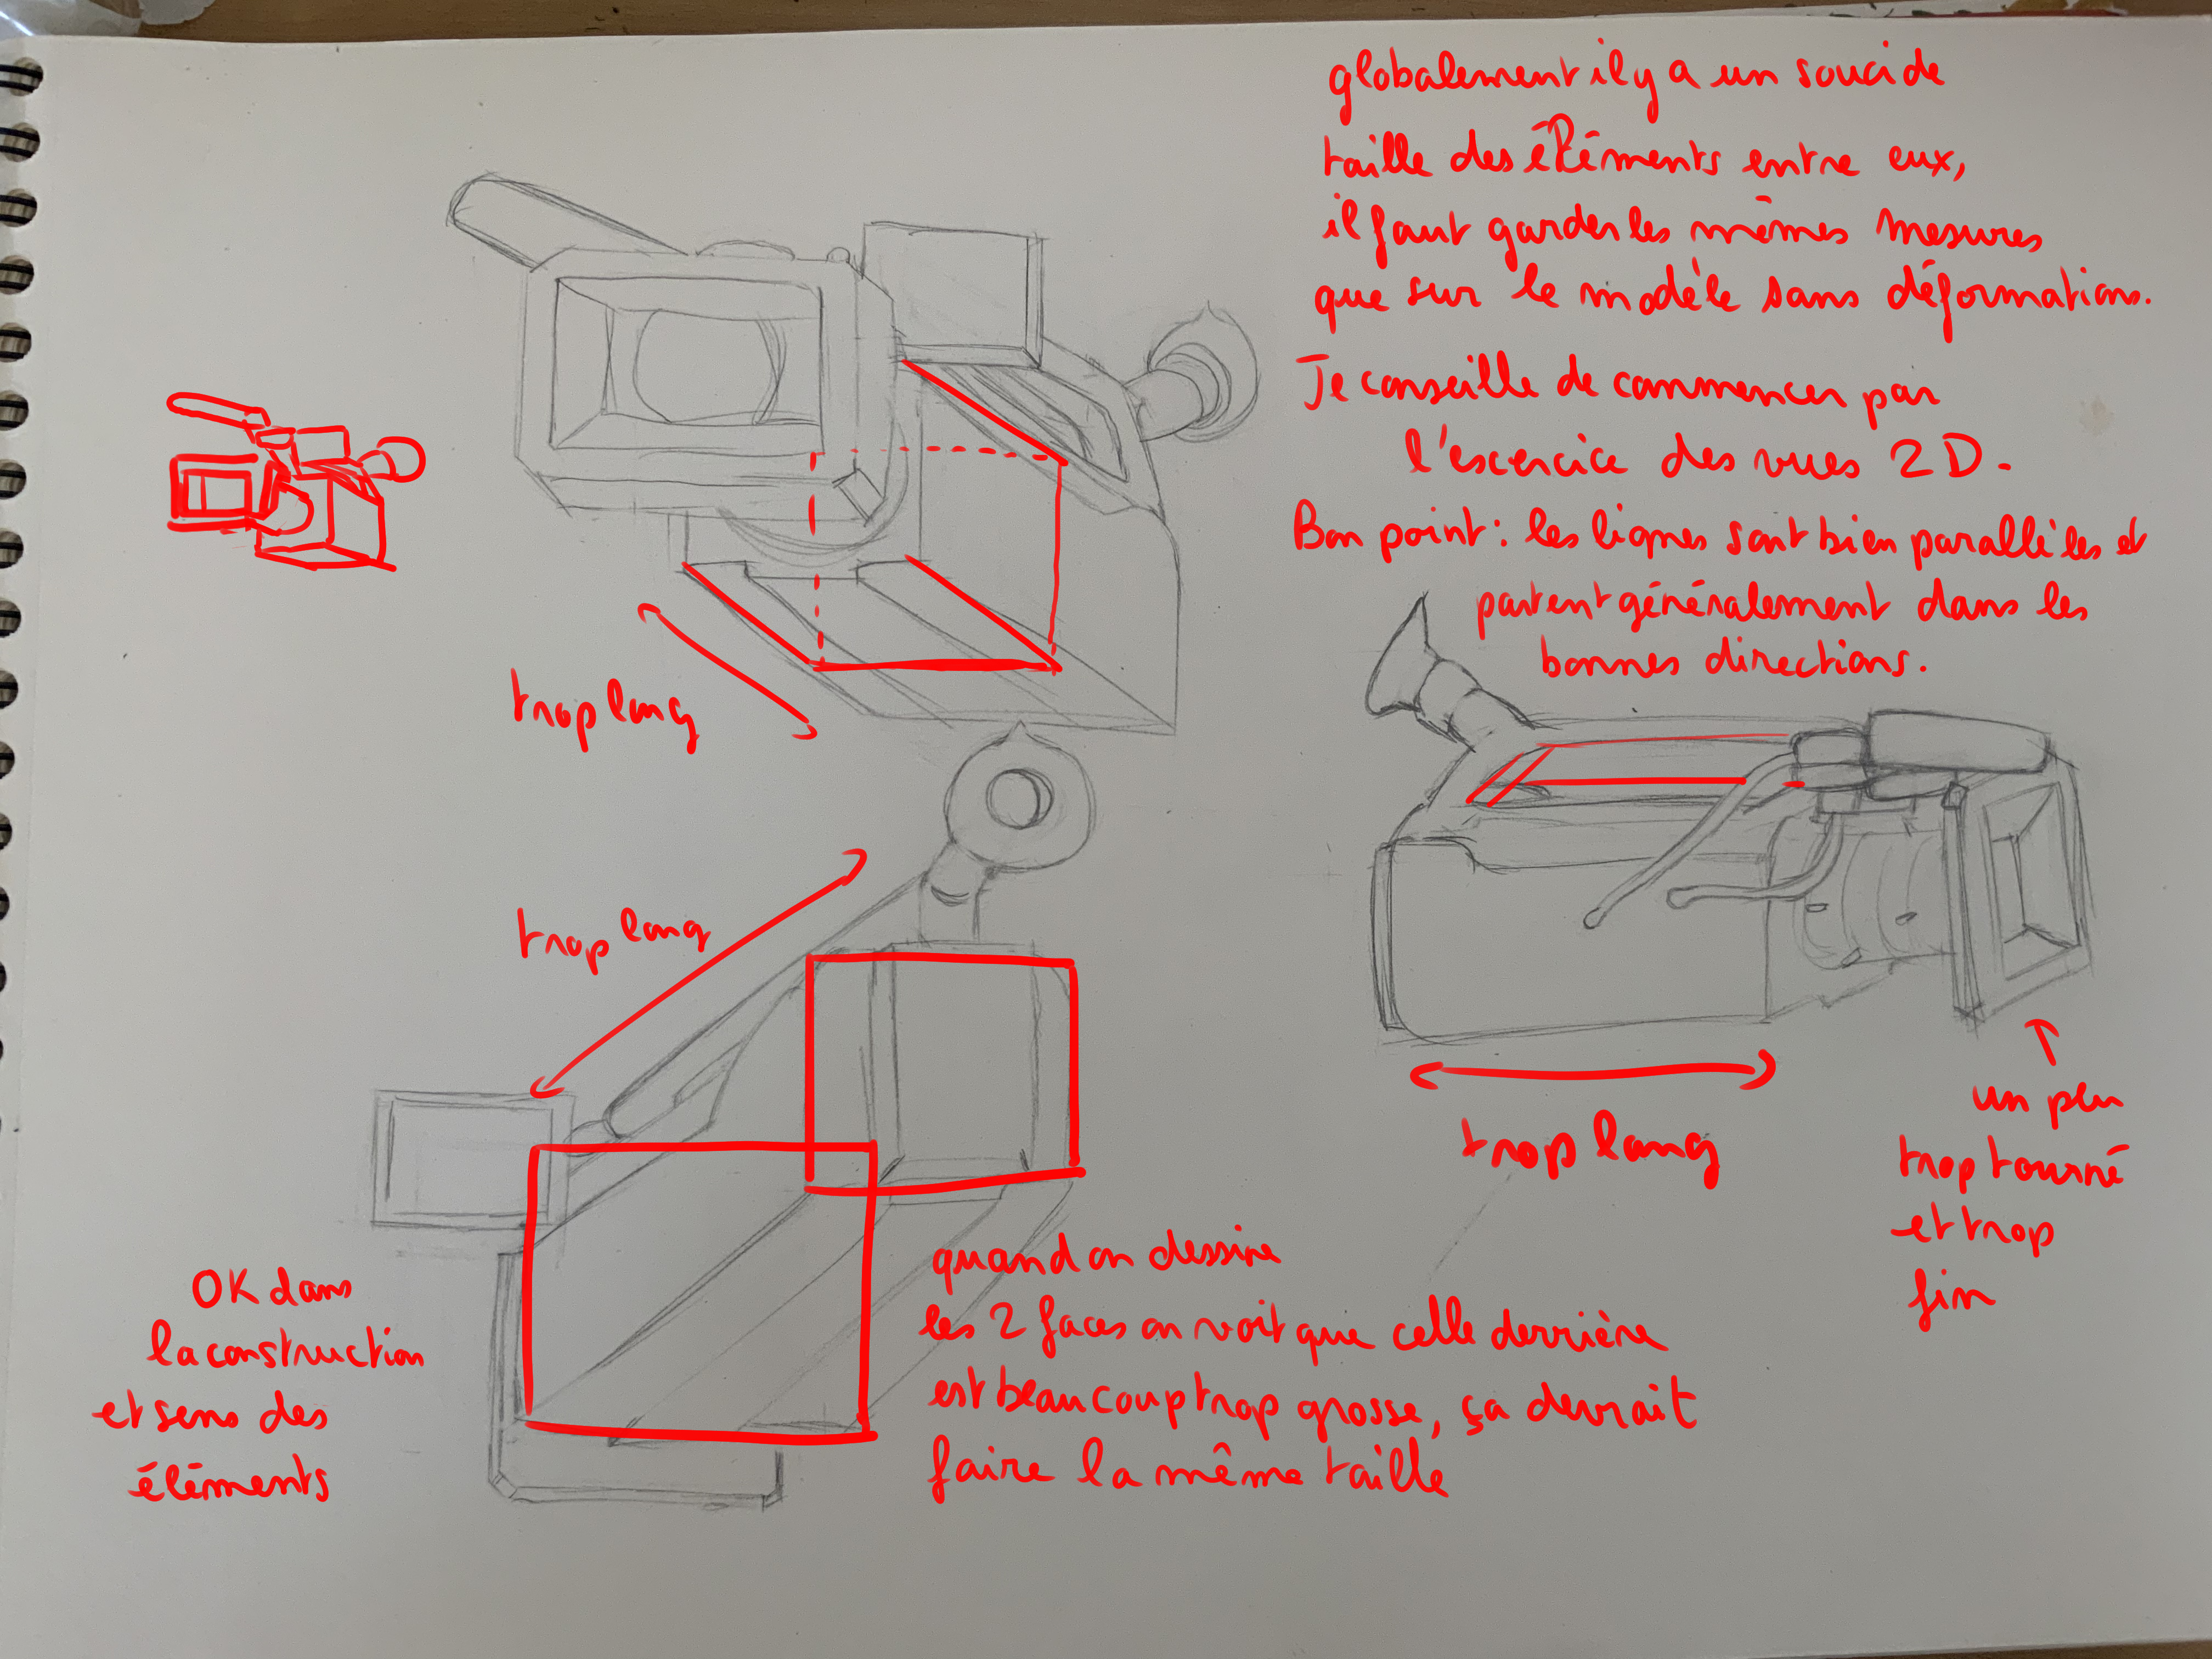 globalement il y a un souci de
taille des éléments entre eux,
il faut garder les mêmes mesures
que sur le modèle sans déformations.
Je conseille de commencer par
l'escercice des vues 2D.
Bon point : les lignes sont bien parallèles et
partent généralement dans les
bonnes directions.
trop long
trop long
trop long
un peu
trop tourné
et trop
fin
OK dans
la construction
et sens des
éléments
quand on dessine
les 2 faces on voit que celle derrière
est beaucoup trop grosse, ça devrait
faire la même taille